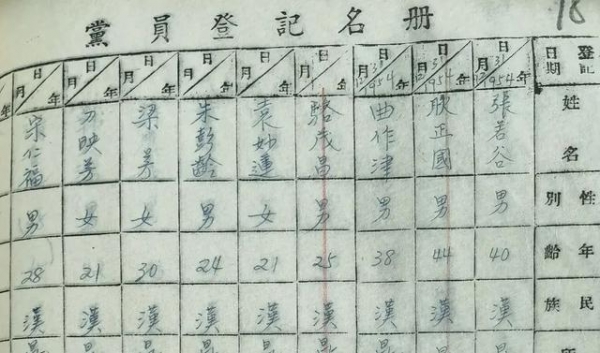 18
黨員登記名册
登記日期 姓名 性別 年齡 民族
12月31日1954年 張若谷 男 40 漢
12月31日1954年 耿正國 男 44 漢
12月31日1954年 曲作津 男 38 漢
月日年 駱茂昌 男 25 漢
月日年 袁妙蓮 女 21 漢
月日年 朱彭齡 男 24 漢
月日年 梁 女 30 漢
月日年 映芳 女 21 漢
月日年 宋仁福 男 28 漢
年